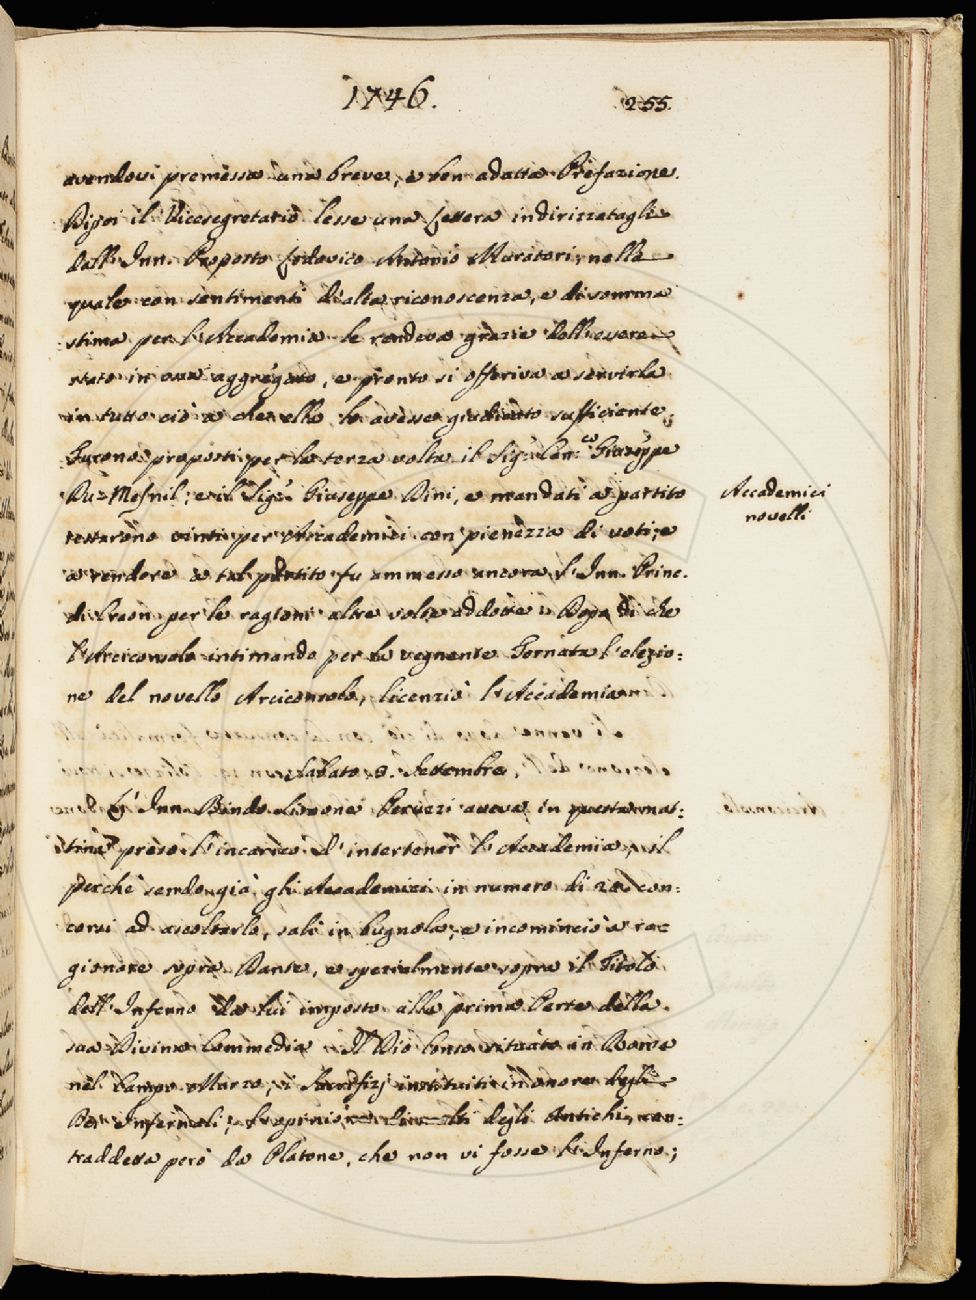 1746.
255.
avendovi premessa una breve, e ben adatta Prefazione.
Dipoi il Vicesegretario lesse una Lettera indirizzatagli
dall' Inn. Proposto Lodovico Antonio Muratori, nella
quale con sentimenti di alta riconoscenza, e di somma
stima per l'Accademia le rendeva grazie dell'essere
stato in essa aggregato, e pronto si offeriva a servirla
in tutto ciò a che ella lo avesse giudicato sufficiente.
Furono proposti per la terza volta il Sig.r Giuseppe
Du-Mesnil; e il Sig.r Giuseppe Bini, e mandati a partito
restarono vinti per Accademici con pienezza di voti; e
a rendere a tal partito fu ammesso ancora l'Inn. Princ.
di Craon per le ragioni altre volte addotte. Dopo di che
l'Arciconsolo intimando per la vegnente Tornata l'elezio:
ne del novello Arciconsolo, licenziò l'Accademia.
Accademici
novelli
Sabato 3. Settembre.
L' Inn. Bindo Simone Peruzzi aveva in questa mat:
tina preso l'incarico d'intertener l'Accademia, il
perchè sendo già gli Accademici in numero di con:
corsi ad ascoltarlo, salì in bugnola, e incominciò a ra:
gionare sopra Dante, e spezialmente sopra il Titolo
dell'Inferno da lui imposto alla prima Parte della
sua Divina Commedia. Il Dio Conso situato in Roma
nel Campo Marzo, i Sacrifizj instituiti in onore degli
Dei Infernali; l'opinione di molti degli Antichi, con:
traddetta però da Platone, che non vi fosse l'Inferno;